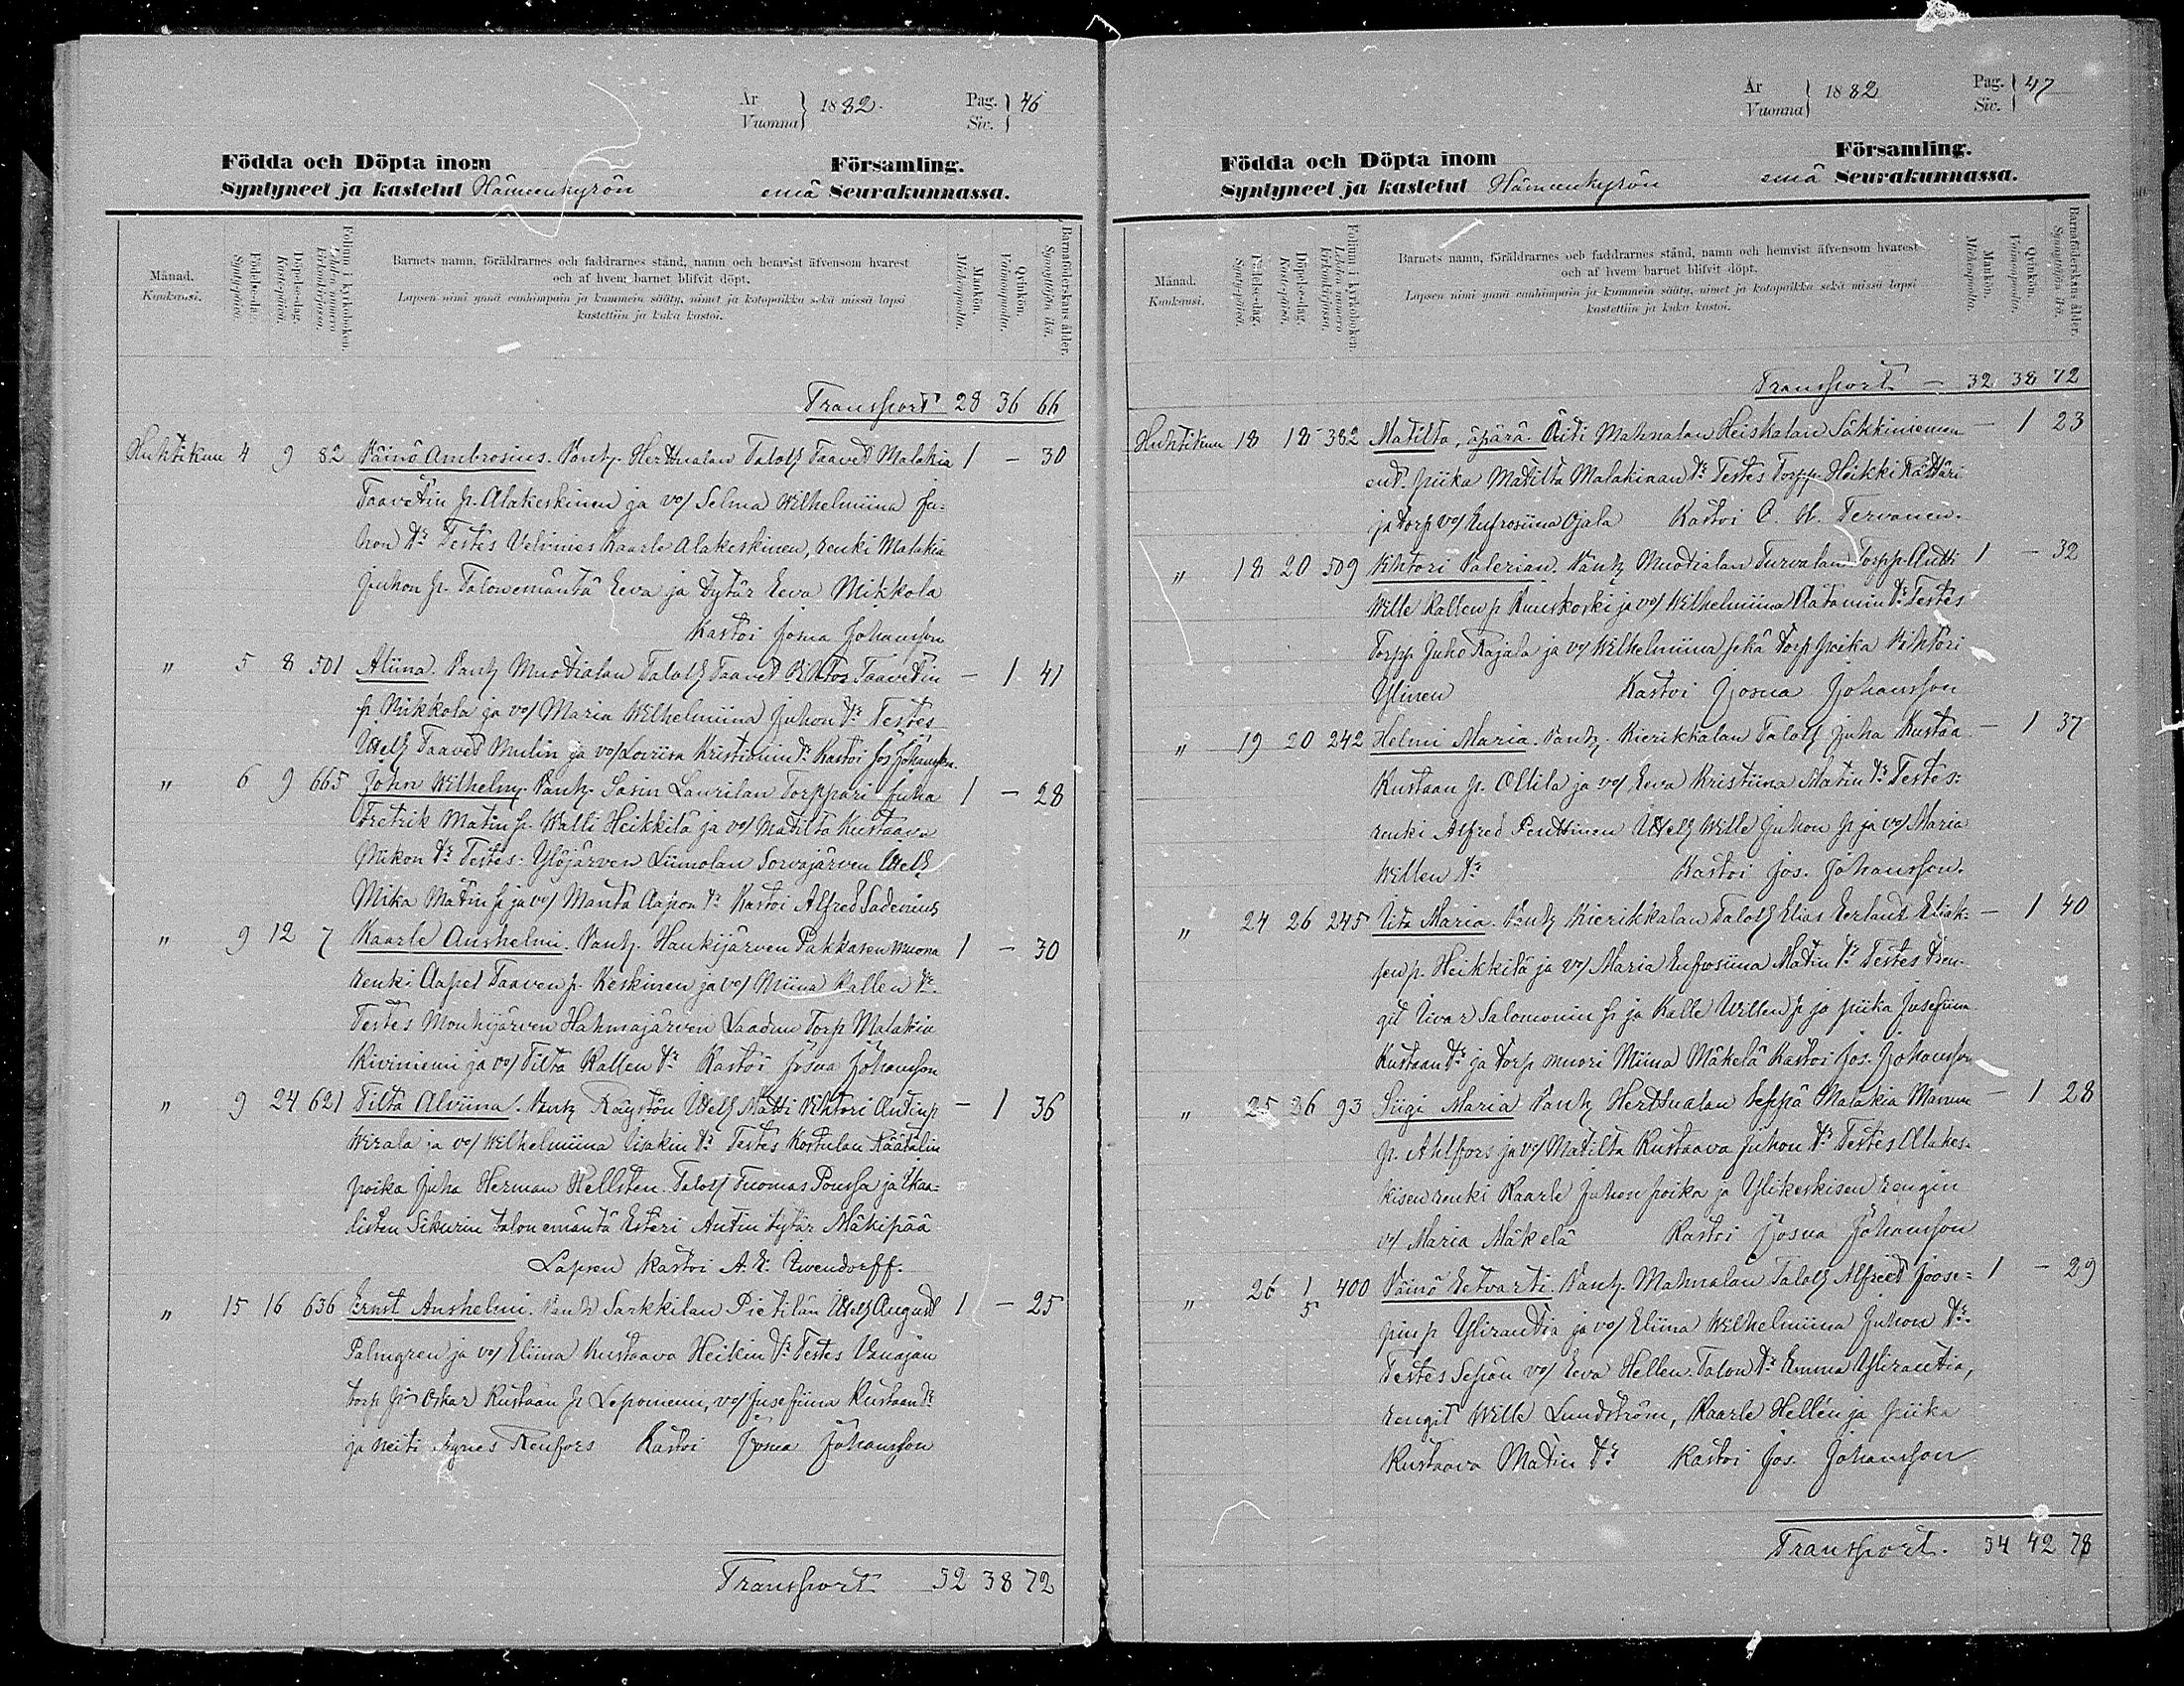 År
Vuonna } 1882. Pag.
Siv. } 46
Födda och Döpta inom Församling.
Syntyneet ja kastetut Hämeenkyrön emä Seurakunnassa.
Månad.
Kuukausi.
Födelse-dag.
Syntypäivä.
Döpelse-dag.
Kastepäivä.
Folium i kyrkoboken.
Lehden numero kirkonkirjassa.
Barnets namn, föräldrarnes och faddrarnes stånd, namn och hemvist äfvensom hvarest
och af hvem barnet blifvit döpt.
Lapsen nimi ynnä vanhimpain ja kummein sääty, nimet ja kotopaikka sekä missä lapsi
kastettiin ja kuka kastoi.
Mankön.
Miehenpuolta.
Qvinkön.
Vaimonpuolta.
Barnaföderskans ålder.
Synnyttäjän ikä.
Transport 28 36 66
Huhtikuu 4 9 82 Väinö Ambrosius. Vanh. Herttualan Taloll Taavet Malakia 1 – 30
Taavetin p. Alakeskinen ja vo/ Selma Wilhelmiina Ju=
hon tr Testes Velimies Kaarle Alakeskinen, renki Malakia
Juhon p. Talonemäntä Eeva ja tytär Eeva Mikkola
Kastoi Josua Johansson
" 5 8 501 Aliina. Vanh Muotialan Taloll Taavet Viktor Taavetin – 1 41
p. Nikkola ja vo/ Maria Wilhelmiina Juhon tr Testes
Itsell Taavet Mulin ja vo/ Loviisa Kristianin tr Kastoi Jos Johansson.
" 6 9 665 John Wilhelm. Vanh. Sasin Laurilan Torppari Juha 1 – 28
Fretrik Matin p. Walli Heikkilä ja vo/ Matilta Kustaava
Mikon tr Testes: Ylöjärven Liimolan Sorvajärven Itsell
Mika Matin p ja vo/ Manta Aapon tr Kastoi Alfred Sadenius
" 9 12 7 Kaarle Anshelmi. Vanh. Haukijärven Pakkasen muona 1 – 30
renki Aapel Taaven p. Keskinen ja vo/ Miina Kallen tr.
Testes Mouhijärven Hahmajärven Laadun Torp Malakia
Kiviniemi ja vo/ Tilta Kallen tr Kastoi Josua Johansson
" 9 24 621 Tilta Alviina. Vanh Räystön Itsell Matti Vihtori Antin p – 1 36
Wirala ja vo/ Wilhelmiina Iisakin tr Testes Kostulan Räätälin
poika Juha Herman Hellsten. Taloll Tuomas Poussa ja Ikaa=
listen Sikurin talon emäntä Esteri Antin tytär Mäkipää
Lapsen kastoi A. E. Zwendorff.
" 15 16 636 Ernst Anshelmi. Vanh Sarkkilan Pietilän Itsell August 1 – 25
Palmgren ja vo/ Eliina Kustaava Heikin tr Testes Vanajan
torp p Oskar Kustaan p Leponiemi, vo/ Jusefiina Kustaan tr
ja neiti Agnes Renfors Kastoi Josua Johansson
Transport 32 38 72
År
Vuonna } 1882 Pag.
Siv. } 47
Födda och Döpta inom Församling.
Syntyneet ja kastetut Hämeenkyrön emä Seurakunnassa.
Månad.
Kuukausi.
Födelse-dag.
Syntypäivä.
Döpelse-dag.
Kastepäivä.
Folium i kyrkoboken.
Lehden numero kirkonkirjassa.
Barnets namn, föräldrarnes och faddrarnes stånd, namn och hemvist äfvensom hvarest
och af hvem barnet blifvit döpt.
Lapsen nimi ynnä vanhimpain ja kummein sääty, nimet ja kotopaikka sekä missä lapsi
kastettiin ja kuka kastoi.
Mankön.
Miehenpuolta.
Qvinkön.
Vaimonpuolta.
Barnaföderskans ålder.
Synnyttäjän ikä.
Transport – 32 38 72
Huhtikuu 18 18 382 Matilta, äpärä. Äiti Mahnalan Heiskalan Säkkiniemen – 1 23
ent. piika Matilta Malakinan tr Testes Torpp. Heikki Rättäri
ja torp vo/ Eufrosiina Ojala Kastoi C. W. Tervanen.
" 18 20 509 Vihtori Valerian. Vanh Muotialan Turvalan Torpp. Antti 1 – 32
Wille Kallen p Kuuskoski ja vo/ Wilhelmiina Aatamin tr Testes
Torpp Juho Rajala ja vo/ Wilhelmiina sekä torp poika Vihtori
Ylinen Kastoi Josua Johansson
" 19 20 242 Helmi Maria. Vanh. Kierikkalan Taloll Juha Kustaa – 1 37
Kustaan p. Ollila ja vo/ Eeva Kristiina Matin tr Testes:
renki Alfred Penttinen Itsell Wille Juhon p ja vo/ Maria
Willen tr Kastoi Jos. Johansson.
" 24 26 245 Iita Maria. Vanh Kierikkalan Taloll Elias Eerlant Eliak= – 1 40
sen p. Heikkilä ja vo/ Maria Eufrosiina Matin tr Testes Ren-
git Iivar Salomonin p ja Kalle Willen p ja piika Jusefiina
Kustaan tr ja torp muori Miina Mäkelä Kastoi Jos. Johansson
" 25 26 93 Siigi Maria Vanh Herttualan Seppä Malakia Manun – 1 28
p. Ahlfors ja vo/ Matilta Kustaava Juhon tr Testes Alakes-
kisen renki Kaarle Juhon poika ja Ylikeskisen rengin
vo/ Maria Mäkelä Kastoi Josua Johansson
" 26 1/5 400 Väinö Eetvarti. Vanh. Mahnalan Taloll Alfred Joose= 1 – 29
pin p Ylirautia ja vo/ Eliina Wilhelmiina Juhon tr.
Testes Sepän vo/ Eeva Hellen. Talon tr Emma Ylirautia,
rengit Wille Lundström, Kaarle Hellén ja piika
Kustaava Matin tr Kastoi Jos. Johansson
Transport. 34 42 78